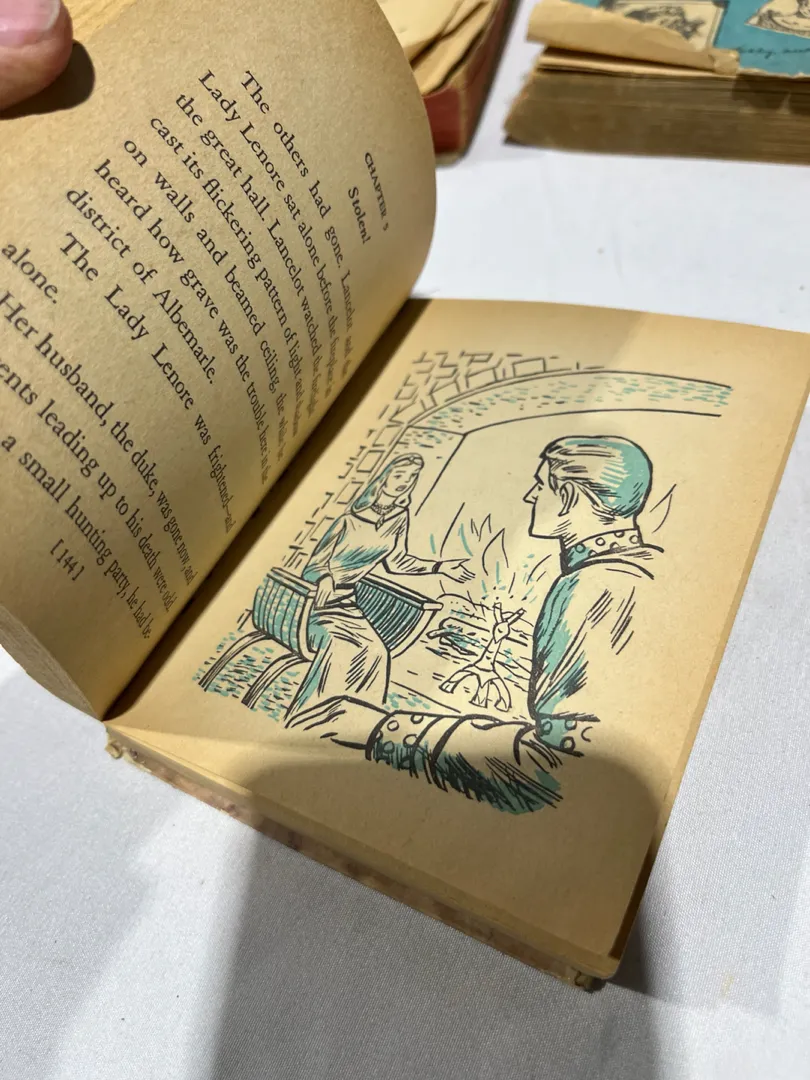 CHAPTER 5
Stolen!
The others had gone. Lancelot and the
Lady Lenore sat alone before the fireplace in
the great hall. Lancelot watched the firelight
cast its flickering pattern of light and shadow
on walls and beamed ceiling, the while he
heard how grave was the trouble here in the
district of Albemarle.
The Lady Lenore was frightened—and
alone.
Her husband, the duke, was gone now and
ents leading up to his death were odd.
a small hunting party, he had be-
[144]